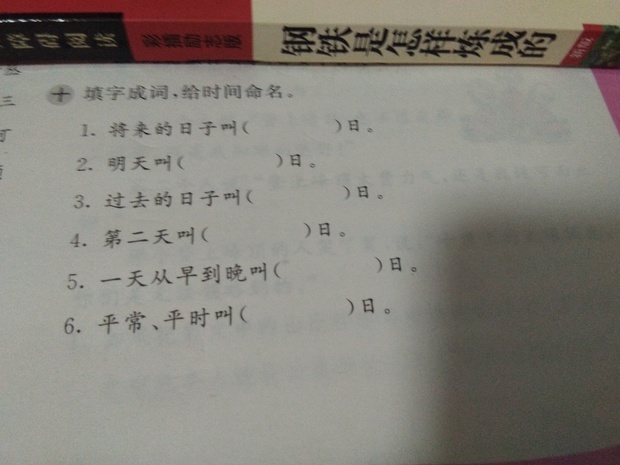 障碍阅读 彩插励志版 钢铁是怎样炼成的
十 填字成词,给时间命名。
1. 将来的日子叫( )日。
2. 明天叫( )日。
3. 过去的日子叫( )日。
4. 第二天叫( )日。
5. 一天从早到晚叫( )日。
6. 平常、平时叫( )日。